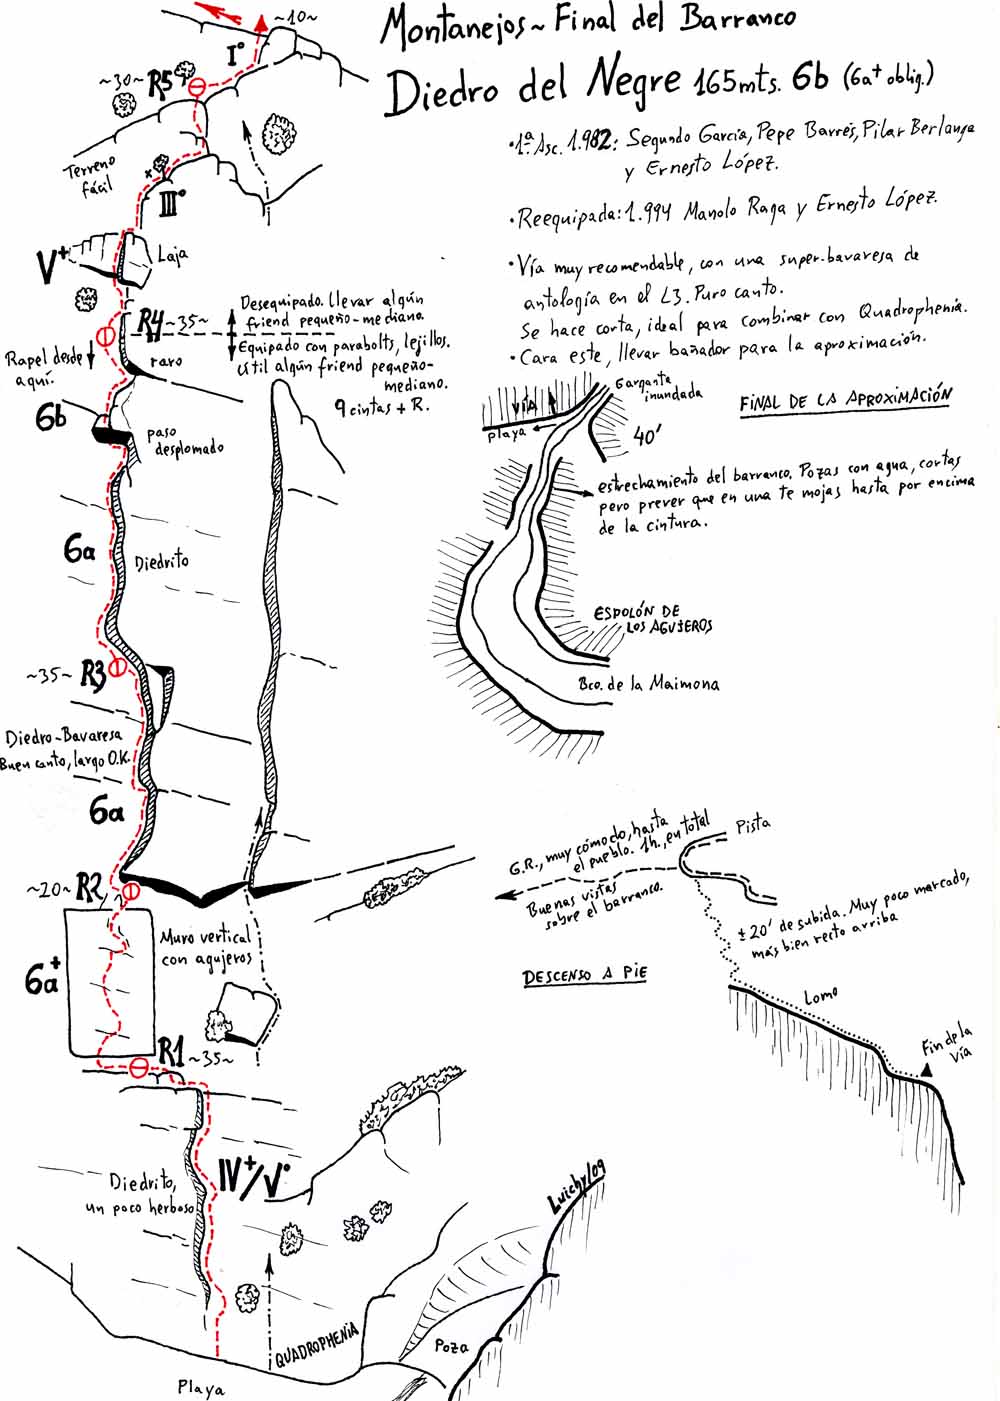 Montanejos ~ Final del Barranco
Diedro del Negre 165mts. 6b (6a+ oblig.)
• 1ª Asc. 1.982: Segundo García, Pepe Barrés, Pilar Berlanga
y Ernesto López.
• Reequipada: 1.994 Manolo Raga y Ernesto López.
• Vía muy recomendable, con una super-bavaresa de
antología en el L3. Puro canto.
Se hace corta, ideal para combinar con Quadrophenia.
• Cara este, llevar bañador para la aproximación.
~10~
I°
~30~ R5
Terreno
fácil
III°
V+
Laja
R4 ~35~
Desequipado. Llevar algún
friend pequeño-mediano.
Equipado con parabolts, lejillos.
Útil algún friend pequeño-
mediano.
9 cintas + R.
Rapel desde
aquí.
raro
6b
paso
desplomado
6a
Diedrito
~35~ R3
Diedro-Bavaresa
Buen canto, largo O.K.
6a
~20~ R2
Muro vertical
con agujeros
6a+
R1 ~35~
IV+/V°
Diedrito,
un poco herboso
QUADROPHENIA
Playa
Poza
Luichy/09
FINAL DE LA APROXIMACIÓN
Garganta
inundada
VÍA
Playa
40'
estrechamiento del barranco. Pozas con agua, cortas
pero prever que en una te mojas hasta por encima
de la cintura.
ESPOLÓN DE
LOS AGUJEROS
Bco. de la Maimona
G.R., muy cómodo, hasta
el pueblo. 1h., en total
Pista
Buenas vistas
sobre el barranco.
± 20' de subida. Muy poco marcado,
más bien recto arriba
DESCENSO A PIE
Lomo
Fin de la
vía